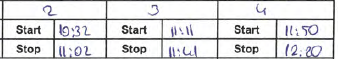 2 3 4
Start 10:32 Start 11:11 Start 11:50
Stop 11:02 Stop 11:41 Stop 12:20